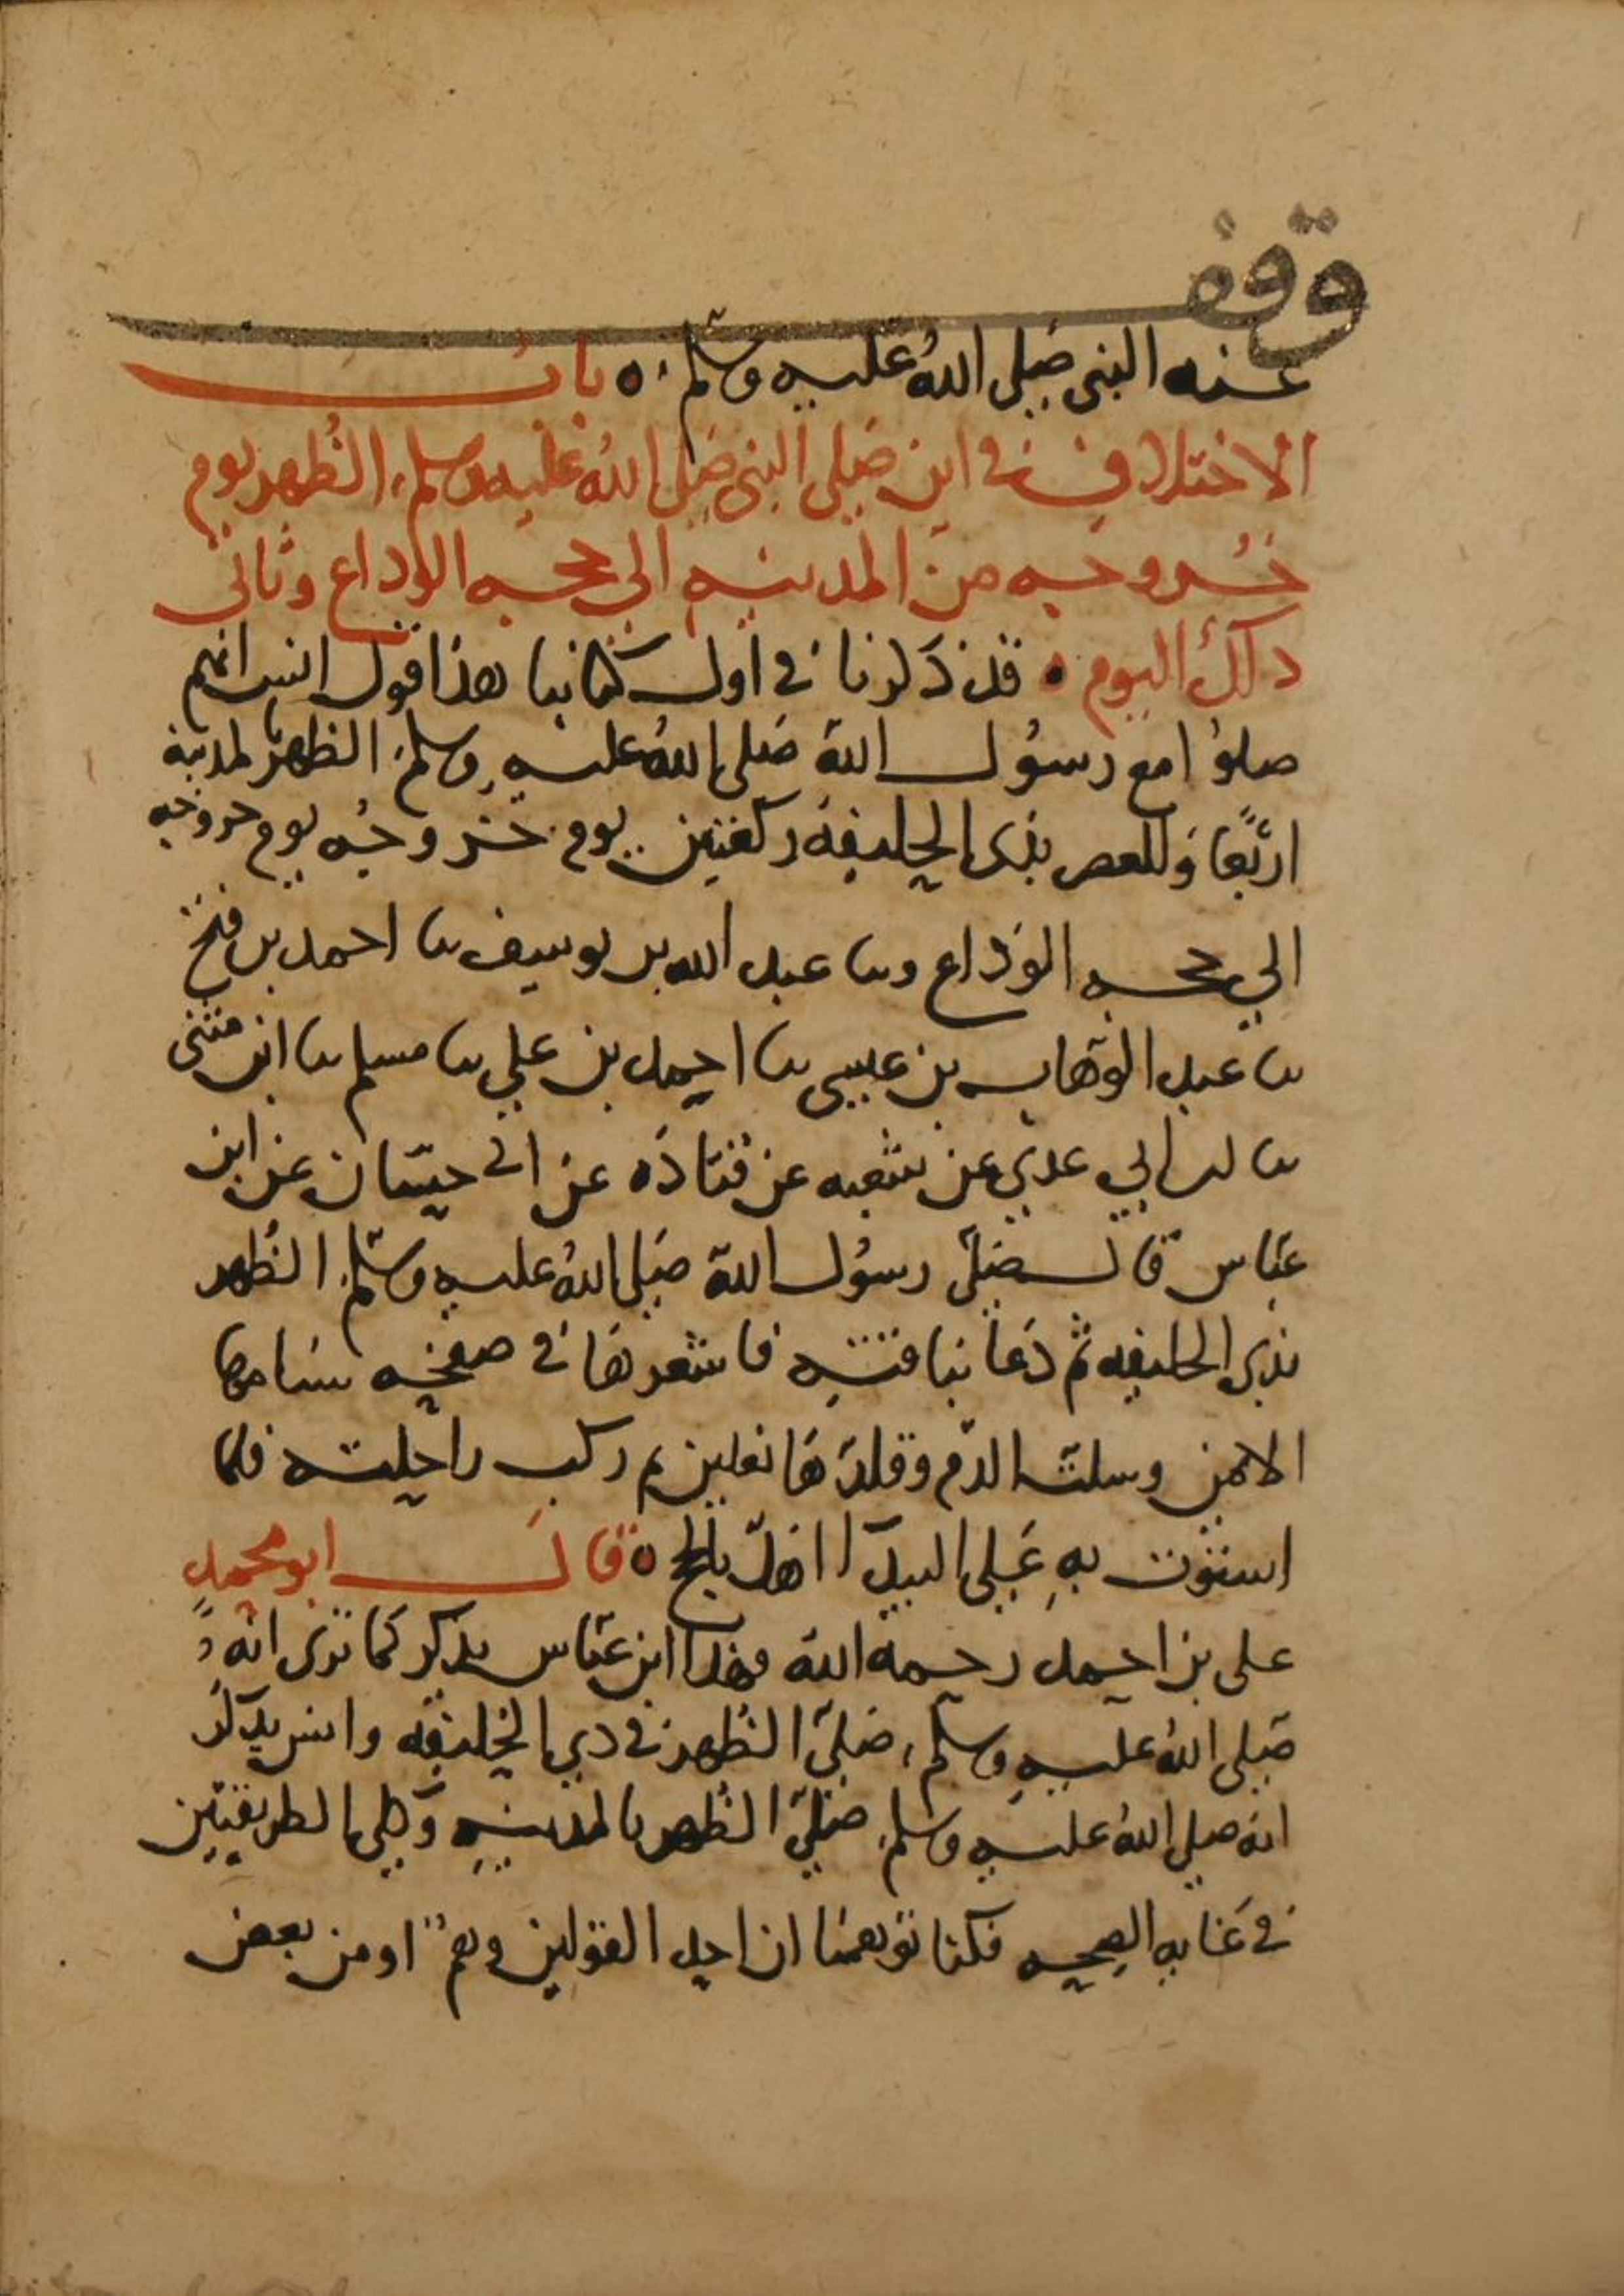 وقف
عنه النبى صلى الله عليه وسلم ٥ باب
الاختلاف في اين صلى النبى صلى الله عليه وسلم الظهر يوم
خروجه من المدينه الي حجه الوداع وثاني
ذلك اليوم ٥ قد ذكرنا في اول كتابنا هذا قول انس انهم
صلوا مع رسول الله صلى الله عليه وسلم الظهر بالمدينة
اربعا والعصر بذى الحليفه ركعتين يوم خروجه يوم خروجه
الي حجه الوداع وسا عبد الله بن يوسف سا احمد بن فتح
سا عبد الوهاب بن عيسى سا احمد بن علي سا مسلم سا ابن مثنى
سا ابن ابي عدي عن شعبه عن قتاده عن ابي حسان عن ابن
عباس قال صلى رسول الله صلى الله عليه وسلم الظهر
بذى الحليفه ثم دعا بناقته فاشعرها في صفحه سنامها
الايمن وسلت الدم وقلدها نعلين ثم ركب راحلته فلما
استوت به على البيدا اهل بالحج ٥ قال ابو محمد
على بن احمد رحمه الله فهذا ابن عباس يذكر كما ترى انه
صلى الله عليه وسلم صلى الظهر في ذي الحليفه وانس يذكر
انه صلى الله عليه وسلم صلى الظهر بالمدينه وكلى الطريقتين
في غايه الصحه فكنا توهمنا ان احد القولين وهم اومن بعض